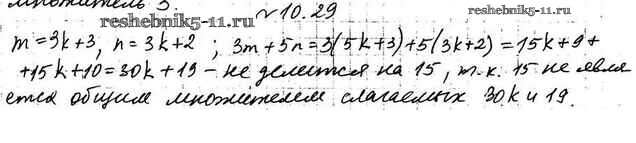 множитель 3.
reshebnik5-11.ru №10.29
m = 3k+3, n = 3k+2 ; 3m+5n = 3(5k+3)+5(3k+2) = 15k+9+
+15k+10 = 30k+19 – не делится на 15, т.к. 15 не явля
ется общим множителем слагаемых 30k и 19.
reshebnik5-11.ru